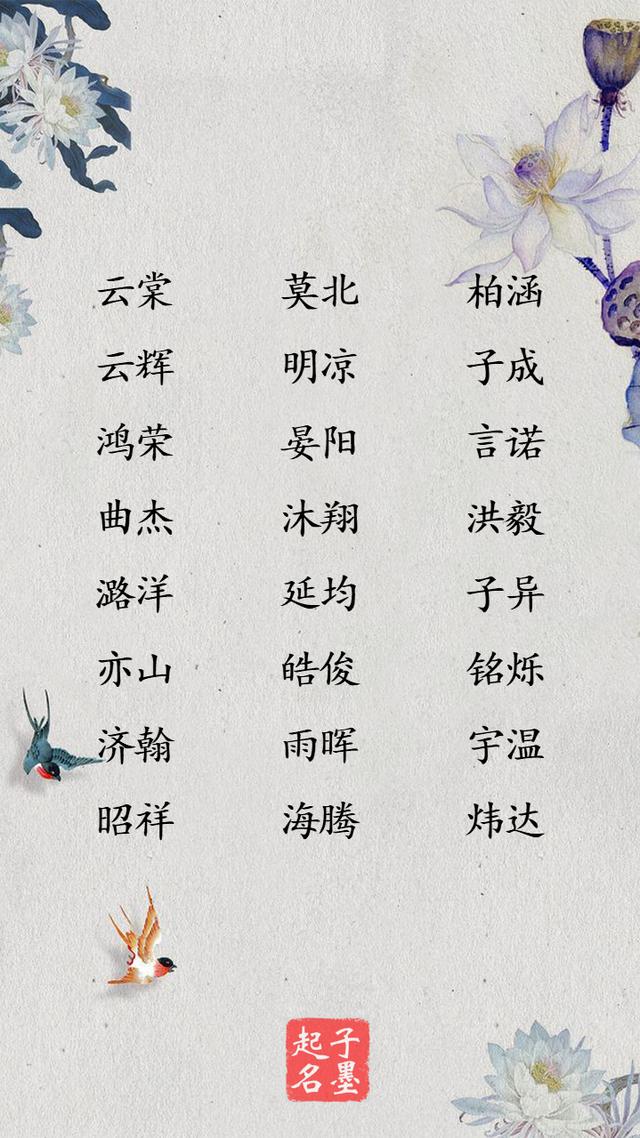 云棠 莫北 柏涵
云辉 明凉 子成
鸿荣 晏阳 言诺
曲杰 沐翔 洪毅
潞洋 延均 子异
亦山 皓俊 铭烁
济翰 雨晖 宇温
昭祥 海腾 炜达
子墨
起名